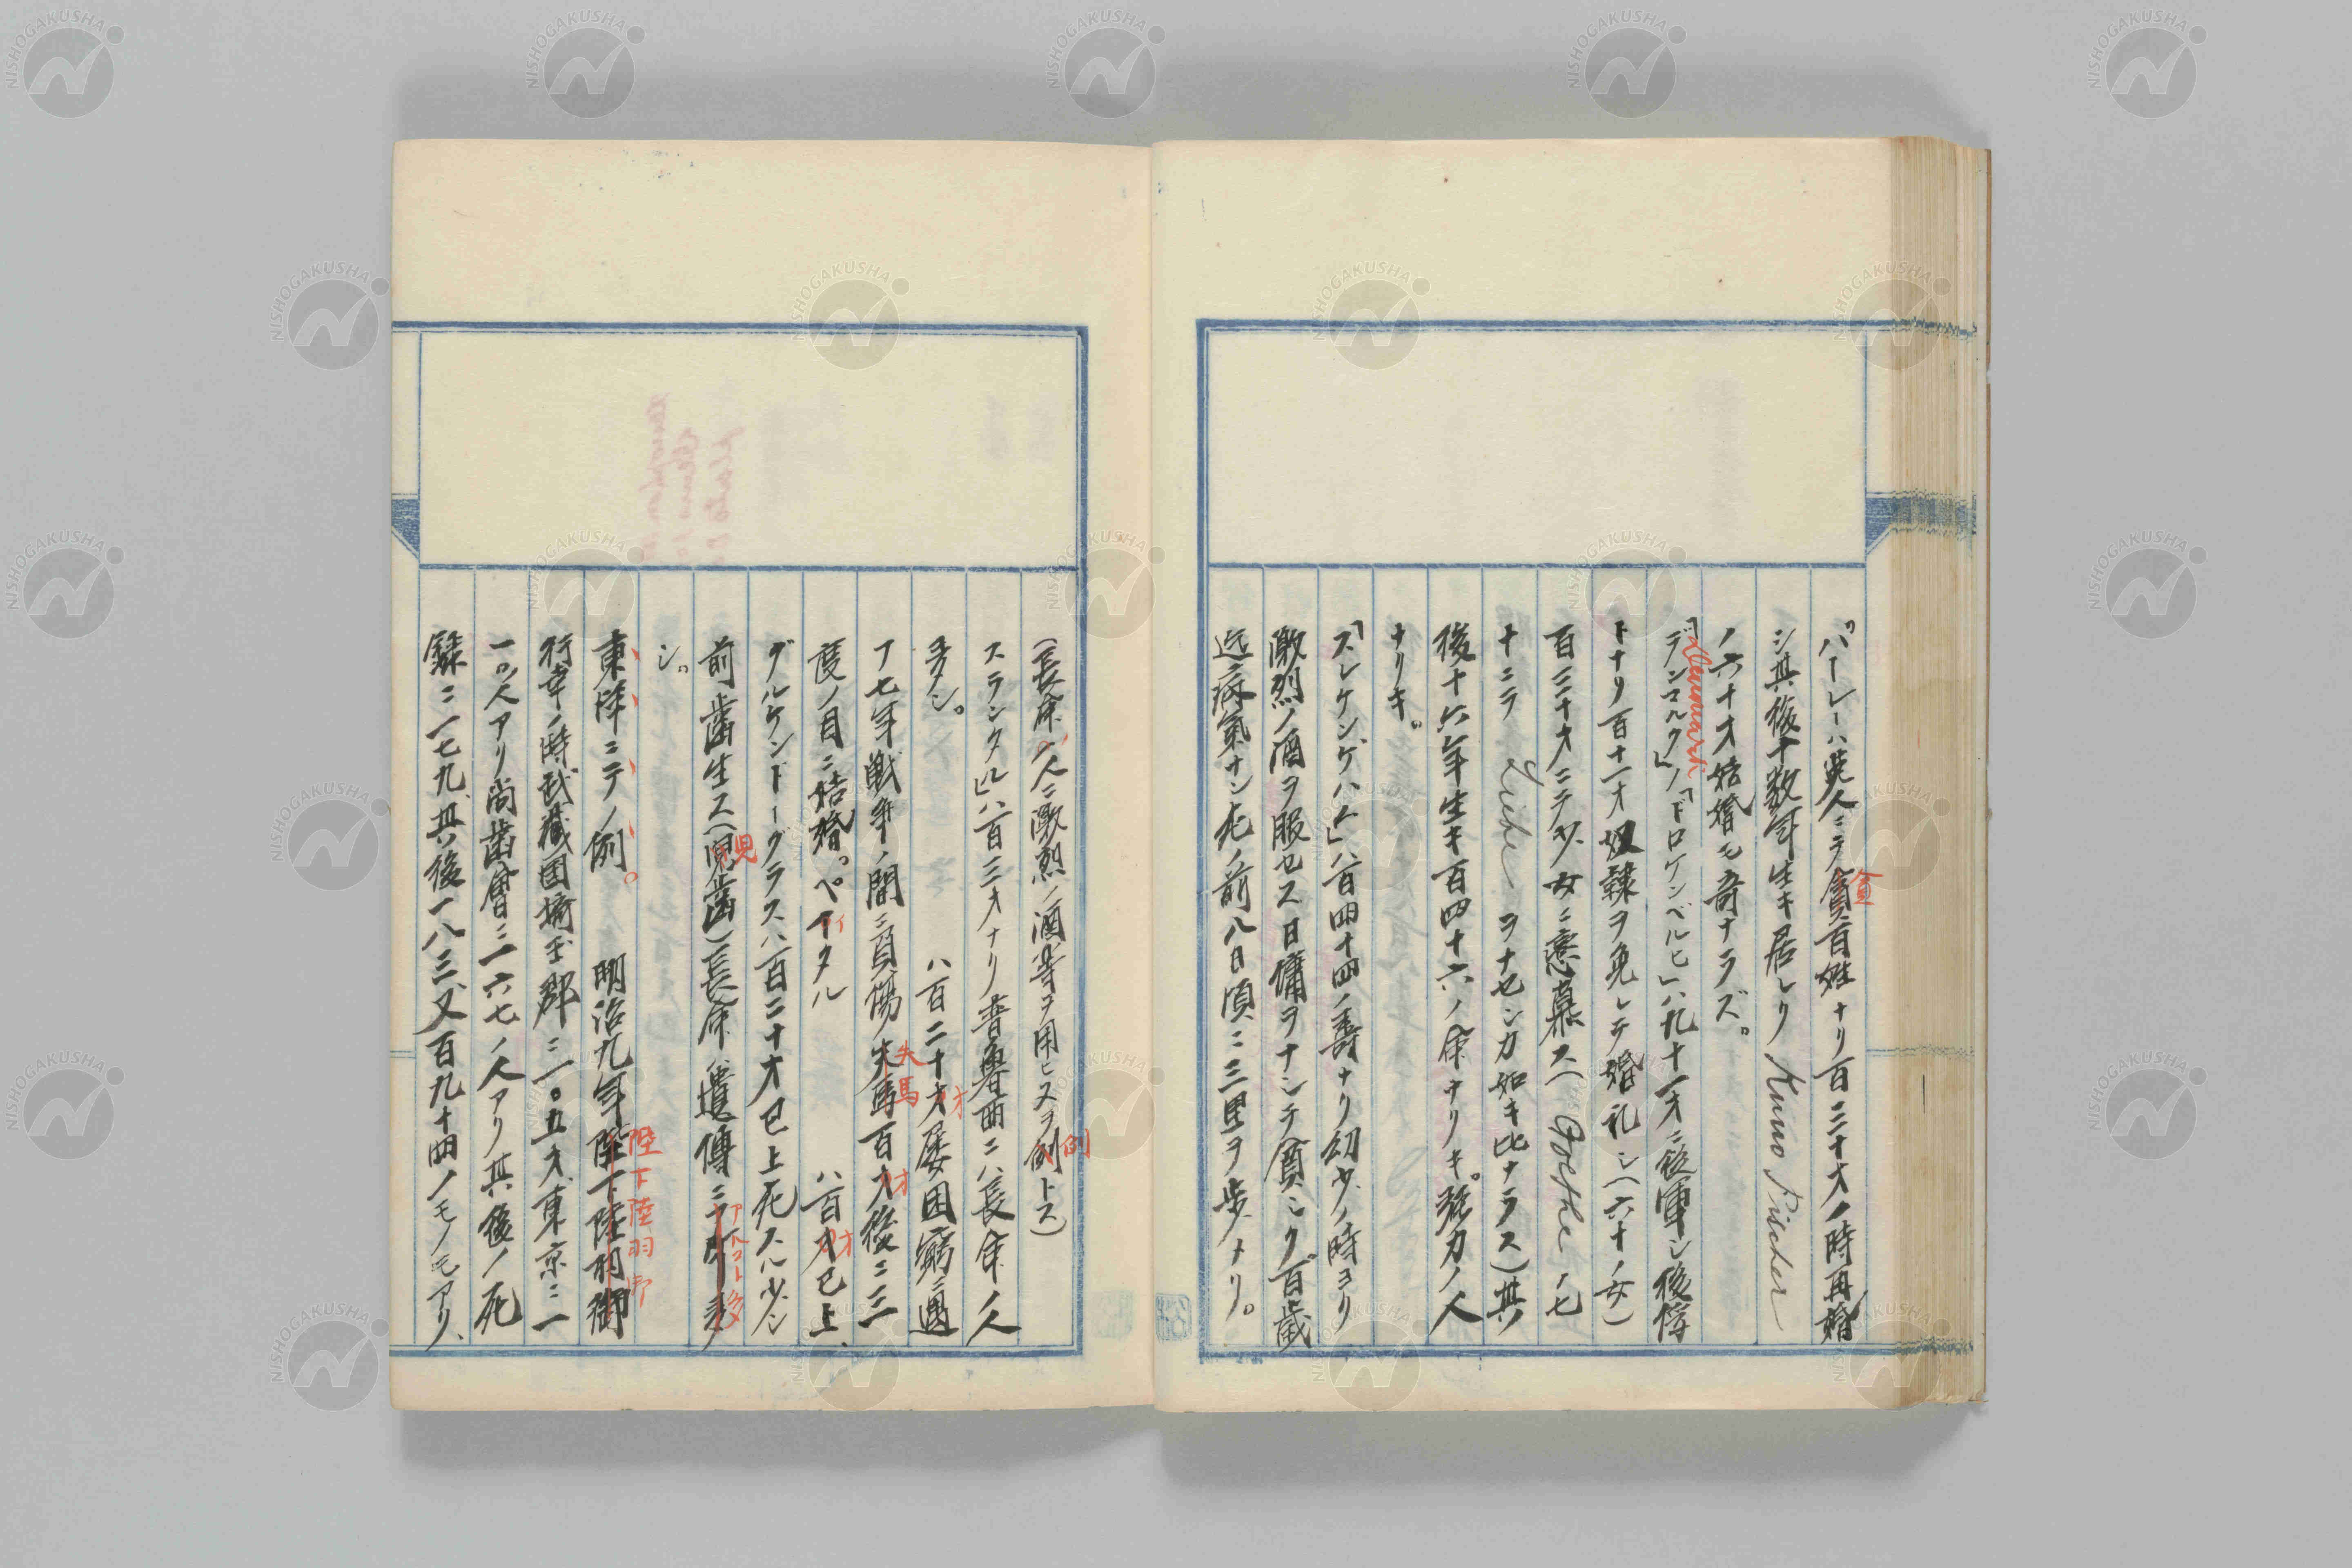 「パーレーハ英人ニテ貧百姓ナリ百二十才ノ時再婚
シ其後十数年生キ居レリ Kuno Fischer
ノ六十才結婚モ奇ナラズ。
「デンマルク」ノ「ドロケンベルヒ」ハ九十一才ニ従軍シ後俘
トナリ百十一才奴隷ヲ免レテ婚礼シ(六十ノ女)
百三十才ニテ少女ニ恋慕ス(Goethe ノ七
十ニテ Liebe ヲナセシカ如キ比ナラス)其
後十六年生キ百四十六ノ命ナリキ。強力ノ人
ナリキ。
「スレケンゲハム」ハ百四十四ノ壽ナリ幼少ノ時ヨリ
激烈ノ酒ヲ服セス日傭ヲナシテ貧シク百歳
迄病氣ナシ死ノ前八日頃ニ三里ヲ歩メリ。
(長命ノ人ニ激烈ノ酒等ヲ用ヒヌヲ例トス)
スランタル」ハ百三才ナリ普魯西ニハ長命ノ人
多シ。 ハ百二十才屡困窮ニ遇
了七年戦争ノ間ニ負傷失馬百才後ニ三
度ノ目ニ結婚。ペイタル ハ百才已上、
グルケンドーグラスハ百二十才已上死スル少シ
前歯生ス(児歯)長命ハ遺傳ニテ
シ。
東洋ニテノ例。 明治九年陸下陸羽御
行幸ノ時武蔵国埼玉郡ニ一〇五才、東京ニ一
一〇ノ人アリ尚歯會ニ一六七ノ人アリ其後ノ死
録ニ一七九、其後一八三、又百九十四ノモノモアリ、
Danmark
貧
例
失馬
才
才
才
児
陛下陸羽御
NISHOGAKUSHA